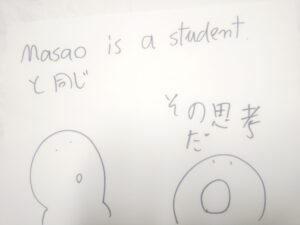 Masao is a student.
と同じ
その思考
だ